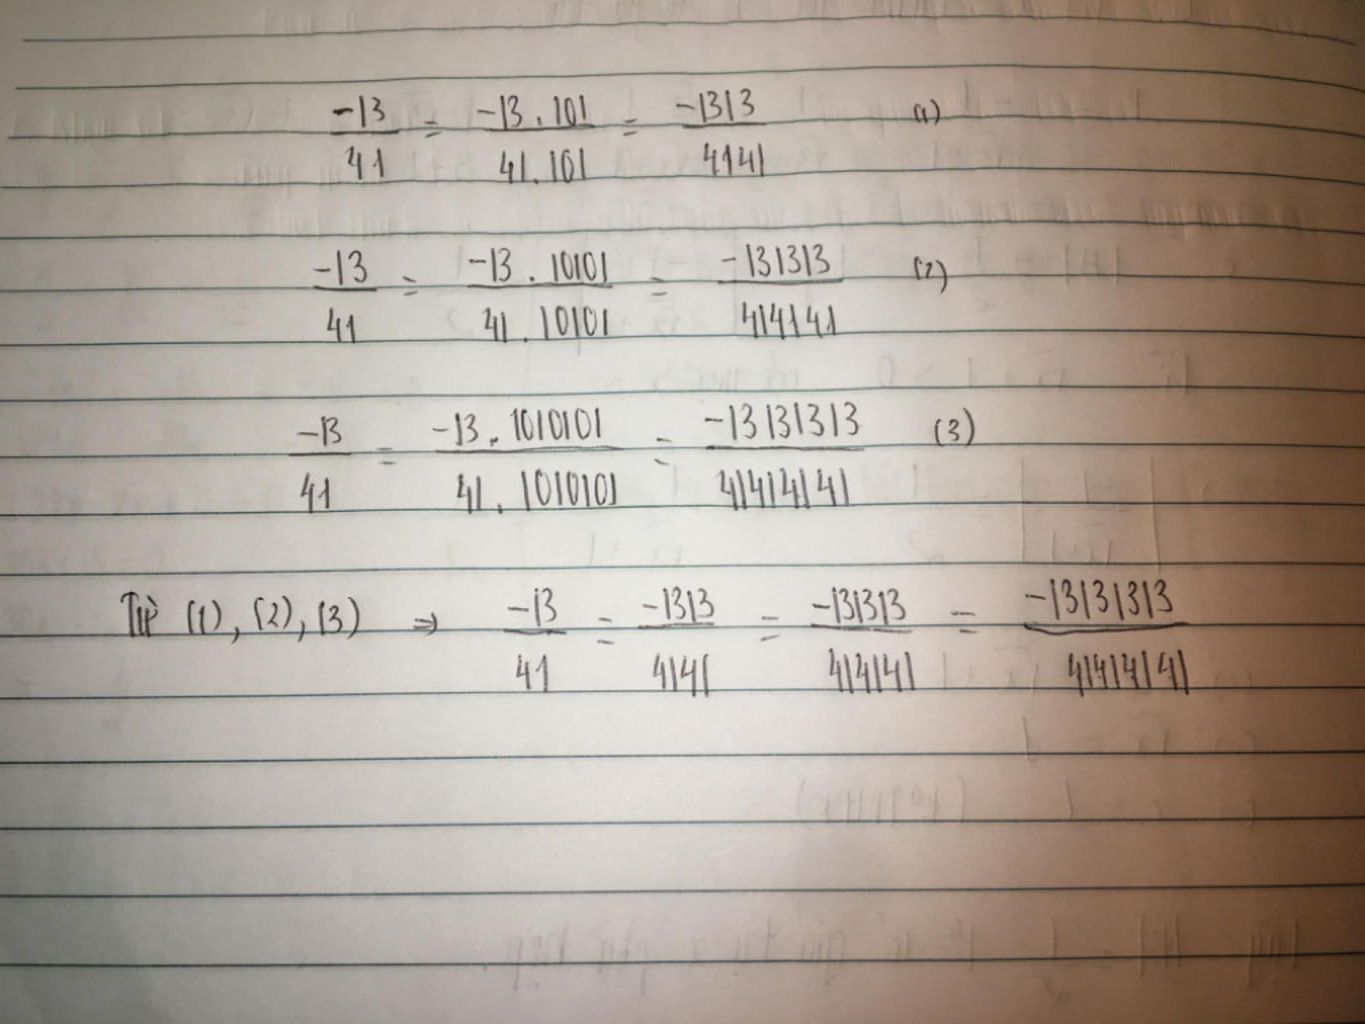 -13/41 = -13 . 101/41 . 101 = -1313/4141 (1)
-13/41 = -13 . 10101/41 . 10101 = -131313/414141 (2)
-13/41 = -13 . 1010101/41 . 1010101 = -13131313/41414141 (3)
Từ (1), (2), (3) ⇒ -13/41 = -1313/4141 = -131313/414141 = -13131313/41414141